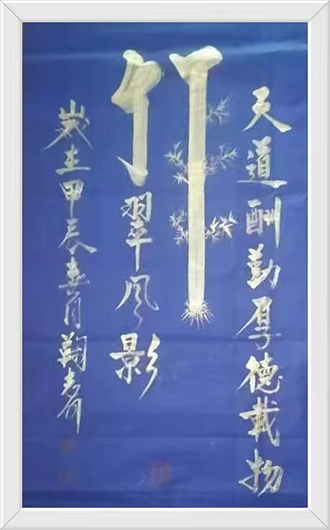 天道酬勤厚德载物
竹
翠风影
歲在甲辰春月鞠